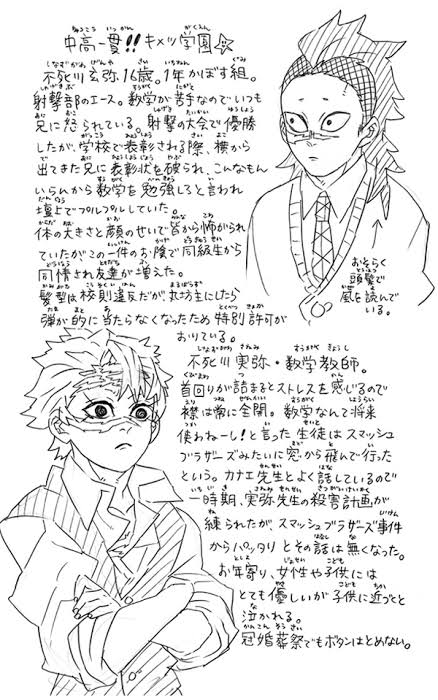 中高一貫!!キメツ学園☆
不死川玄弥。16歳。1年かぼす組。
射撃部のエース。数学が苦手なのでいつも
兄に怒られている。射撃の大会で優勝
したが、学校で表彰される際、横から
出てきた兄に表彰状を破られ、こんなもん
いらんから数学を勉強しろと言われ
壇上でプルプルしていた。
体の大きさと顔のせいで皆から怖がられ
ていたがこの一件のお陰で同級生から
同情され友達が増えた。
髪型は校則違反だが丸坊主にしたら
弾が的に当たらなくなったため特別許可が
おりている。
おそらく
頭髪で
風を読んで
いる。
不死川実弥・数学教師。
首回りが詰まるとストレスを感じるので
襟は常に全開。数学なんて将来
使わねーし!と言った生徒はスマッシュ
ブラザーズみたいに窓から飛んで行った
という。カナエ先生とよく話しているので
一時期、実弥先生の殺害計画が
練られたが、スマッシュブラザーズ事件
からパッタリとその話は無くなった。
お年寄り、女性や子供には
とても優しいが子供に近づくと
泣かれる。
冠婚葬祭でもボタンはとめない。